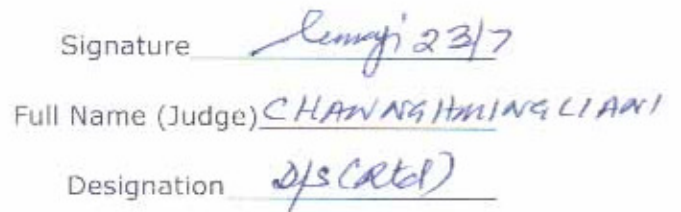 Signature 23/7
Full Name (Judge) CHAWNGHMINGLIANI
Designation D/S (Rtd)